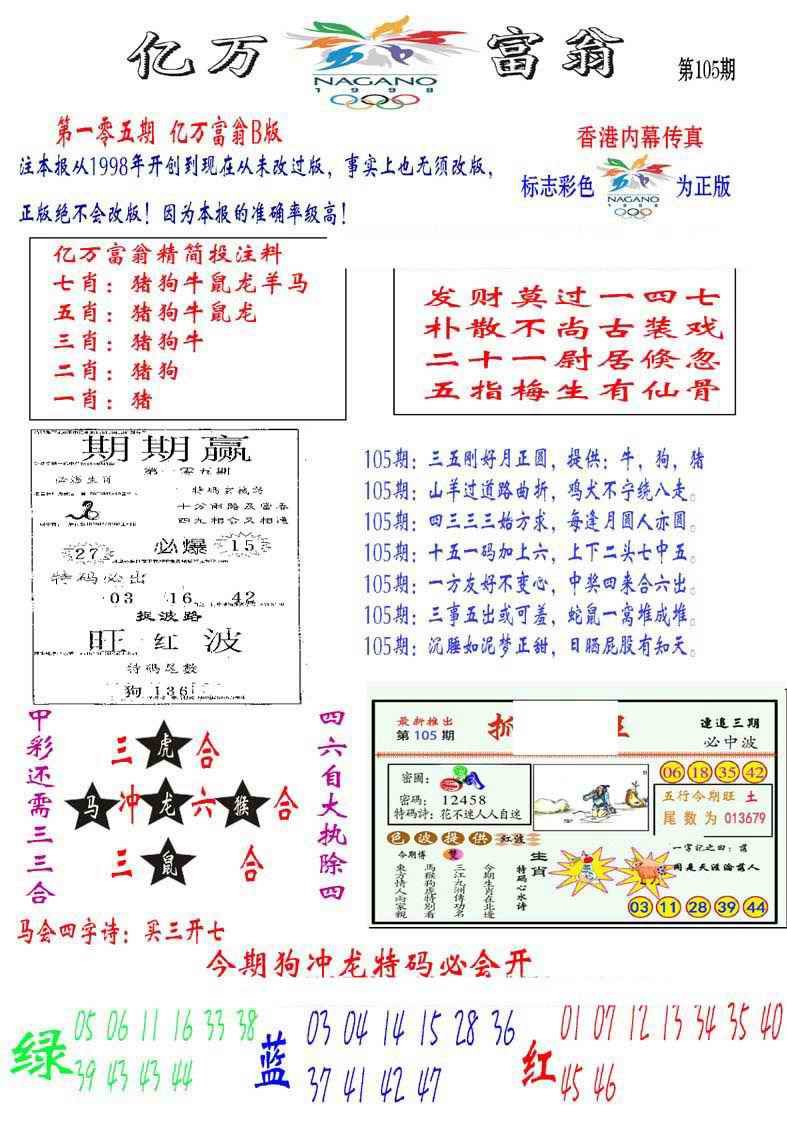 亿万
NAGANO
1998
富翁
第105期
第一零五期 亿万富翁B版
注本报从1998年开创到现在从未改过版，事实上也无须改版，
正版绝不会改版！因为本报的准确率级高！
香港内幕传真
标志彩色
NAGANO
1998
为正版
亿万富翁精简投注料
七肖：猪狗牛鼠龙羊马
五肖：猪狗牛鼠龙
三肖：猪狗牛
二肖：猪狗
一肖：猪
发财莫过一四七
朴散不尚古装戏
二十一尉居倏忽
五指梅生有仙骨
期期赢
第一零五期
必滛生肖
特码玄機詩
十方闹路及富春
四九相合又相通
27
必爆
15
特码必出
03 16 42
捉波路
旺 红 波
特码尾数
狗136
105期：三五刚好月正圆，提供：牛，狗，猪
105期：山羊过道路曲折，鸡犬不宁绕八走。
105期：四三三三始方求，每逢月圆人亦圆。
105期：十五一码加上六，上下二头七中五。
105期：一方友好不变心，中奖四来合六出。
105期：三事五出或可羞，蛇鼠一窝堆成堆。
105期：沉睡如泥梦正甜，日晒屁股有知天。
中彩还需三三合
三 虎 合
马 冲 龙 六 猴 合
三 鼠 合
四六自大执除四
最新推出
第 105 期
抓
连追三期
必中波
密圖：
密碼： 12458
特碼詩：花不迷人人自迷
06 18 35 42
五行今期旺 土
尾 数 为 013679
色波提供 红波
今期博 雙
東方情人向家親
馬猴狗虎特别看
三江九洲傳功名
今期生肖在北邊
特码心水诗
生肖
一字记之曰：落
同是天涯淪落人
03 11 28 39 44
马会四字诗：买三开七
今期狗冲龙特码必会开
绿
05 06 11 16 33 38
39 43 43 44
蓝
03 04 14 15 28 36
37 41 42 47
红
01 07 12 13 34 35 40
45 46